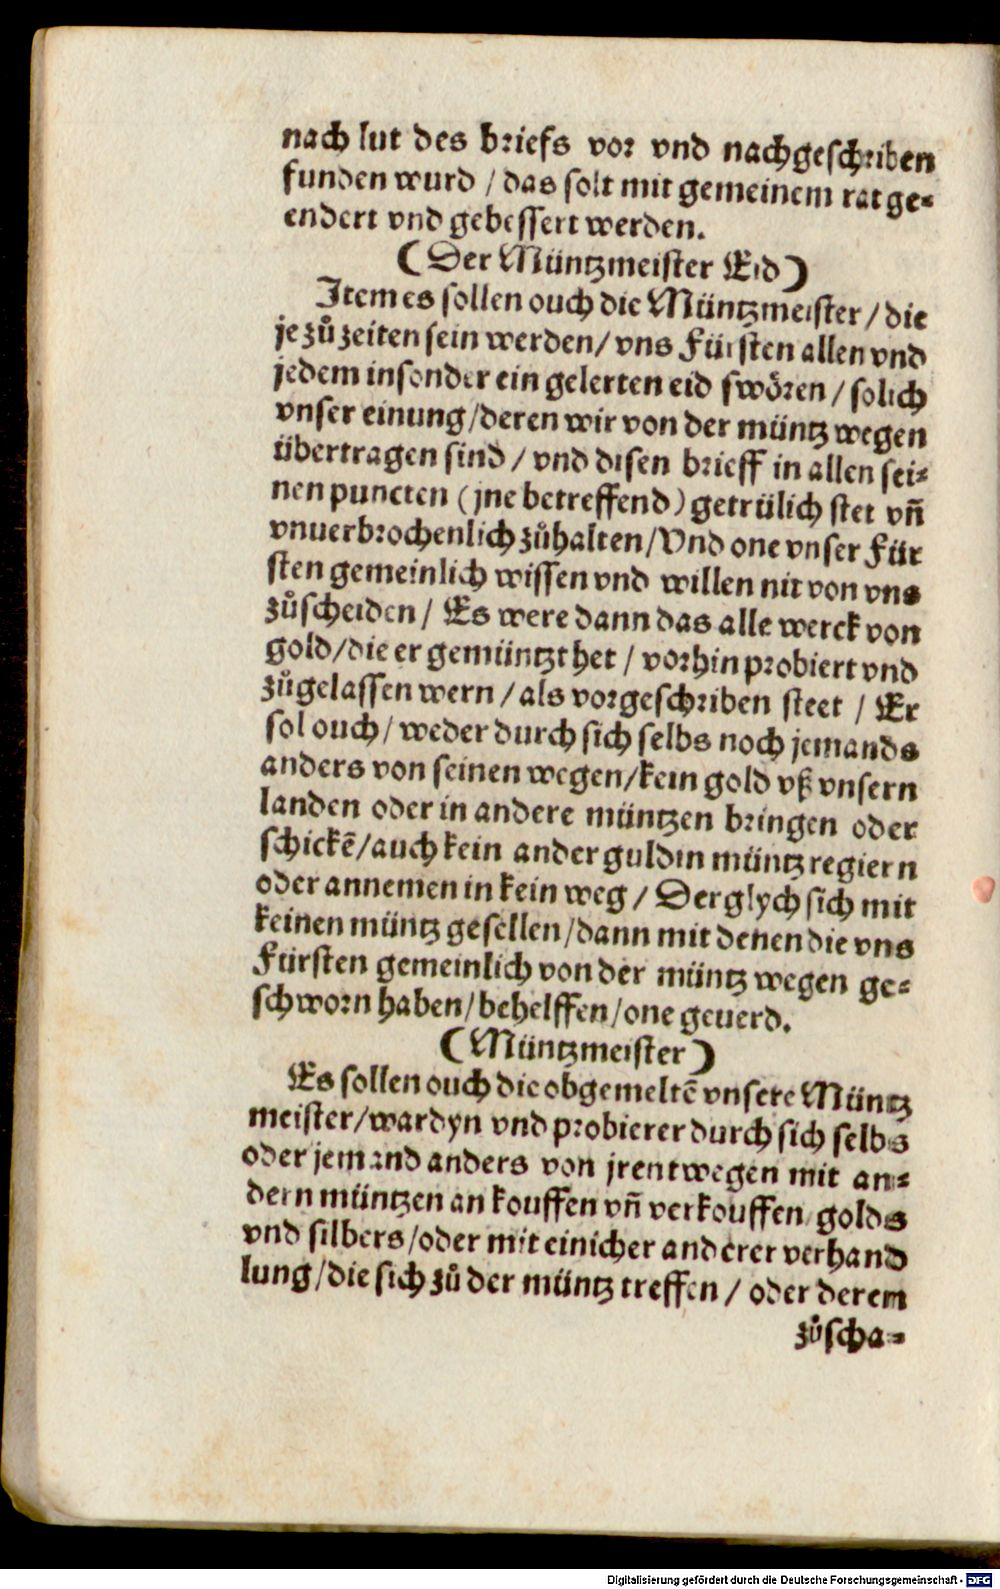 nach lut des briefs vor vnd nachgeschriben
funden wurd / das solt mit gemeinem rat ge⸗
endert vnd gebessert werden.
(Der Müntzmeister Eid)
Item es sollen ouch die Müntzmeister / die
je zů zeiten sein werden / vns Fürsten allen vnd
jedem insonder ein gelerten eid swören / solich
vnser einung / deren wir von der müntz wegen
übertragen sind / vnd disen brieff in allen sei⸗
nen puncten (jne betreffend) getrülich stet vñ
vnuerbrochenlich zůhalten / Vnd one vnser Für
sten gemeinlich wissen vnd willen nit von vns
zůscheiden / Es were dann das alle werck von
gold / die er gemüntzt het / vorhin probiert vnd
zůgelassen wern / als vorgeschriben steet / Er
sol ouch / weder durch sich selbs noch jemands
anders von seinen wegen / kein gold vß vnsern
landen oder in andere müntzen bringen oder
schickẽ / auch kein ander guldin müntz regiern
oder annemen in kein weg / Der glych sich mit
keinen müntz gesellen / dann mit denen die vns
Fürsten gemeinlich von der müntz wegen ge⸗
schworn haben / behelffen / one geuerd.
(Müntzmeister)
Es sollen ouch die obgemeltẽ vnsere Müntz
meister / wardyn vnd probierer durch sich selbs
oder jemand anders von jrentwegen mit an⸗
dern müntzen an kouffen vñ verkouffen golds
vnd silbers / oder mit einicher anderer verhand
lung / die sich zů der müntz treffen / oder derem
zůscha⸗
Digitalisierung gefördert durch die Deutsche Forschungsgemeinschaft - DFG